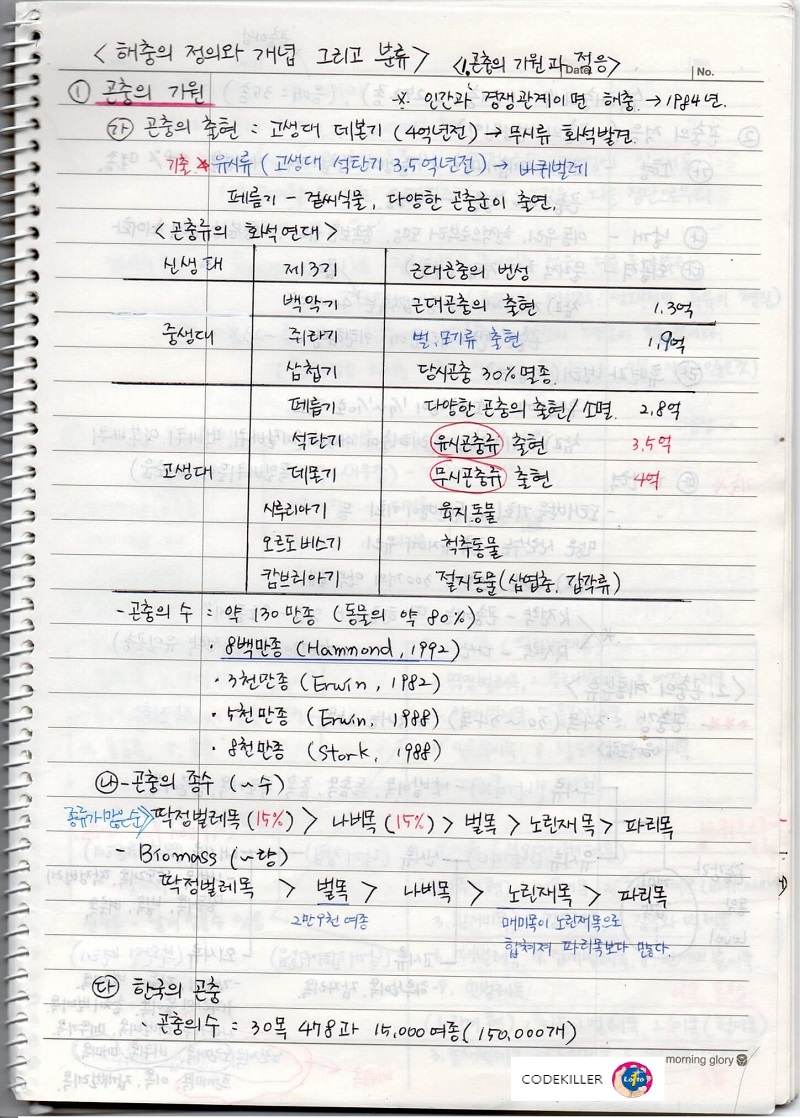 < 해충의 정의와 개념 그리고 분류 > < 1. 곤충의 기원과 적응 >
Date No.
① 곤충의 기원 ※ 인간과 경쟁관계이면 해충. → 1984년.
㉮ 곤충의 출현 = 고생대 데본기 (4억년전) → 무시류 화석발견.
기출 * 유시류 ( 고생대 석탄기 3.5억년전 ) → 바퀴벌레
페름기 - 겉씨식물, 다양한 곤충군이 출연.
< 곤충류의 화석연대 >
신생대 제3기 근대곤충의 번성
백악기 근대곤충의 출현 1.3억
중생대 쥐라기 벌, 모기류 출현 1.9억
삼첩기 당시곤충 30% 멸종.
페름기 다양한 곤충의 출현/소멸. 2.8억
석탄기 유시곤충류 출현 3.5억
고생대 데본기 무시곤충류 출현 4억
시루리아기 육지동물
오르도버스기 척추동물
캄브리아기 절지동물(삼엽충, 갑각류)
- 곤충의 수 : 약 130만종 (동물의 약 80%)
· 8백만종 (Hammond, 1992)
· 3천만종 (Erwin, 1982)
· 5천만종 (Erwin, 1988)
· 8천만종 (Stork, 1988)
㉯ - 곤충의 종수 (~수)
종류가많은순 > 딱정벌레목 (15%) > 나비목 (15%) > 벌목 > 노린재목 > 파리목
- Biomass (~량)
딱정벌레목 > 벌목 > 나비목 > 노린재목 > 파리목
2만9천 여종 매미목이 노린재목으로
합쳐져 파리목보다 많다.
㉰ 한국의 곤충
곤충의수 = 30목 478과 15,000여종 (150,000개)
morning glory
CODEKILLER Lotto